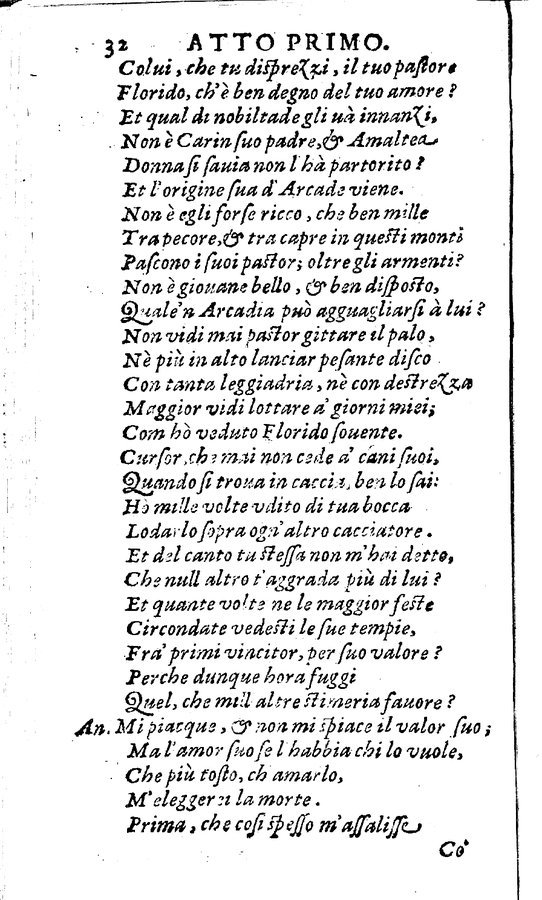 32 ATTO PRIMO.
Colui, che tu disprezzi, il tuo pastore
Florido, ch'è ben degno del tuo amore?
Et qual di nobiltade gli uà innanzi,
Non è Carin suo padre, & Amaltea
Donna sì sauia non l'hà partorito?
Et l'origine sua d'Arcade viene.
Non è egli forse ricco, che ben mille
Tra pecore, & tra capre in questi monti
Pascono i suoi pastor; oltre gli armenti?
Non è giouane bello, & ben disposto,
Quale'n Arcadia può agguagliarsi à lui?
Non vidi mai pastor gittare il palo,
Nè più in alto lanciar pesante disco
Con tanta leggiadria, nè con destrezza
Maggior vidi lottare a' giorni miei;
Com hò veduto Florido souente.
Cursor, che mai non cede a' cani suoi,
Quando si troua in caccia, ben lo sai:
Hò mille volte vdito di tua bocca
Lodarlo sopra ogn'altro cacciatore.
Et del canto tu stessa non m'hai detto,
Che null altro t'aggrada più di lui?
Et quante volte ne le maggior feste
Circondate vedesti le sue tempie,
Frà primi vincitor, per suo valore?
Perche dunque hora fuggi
Quel, che mill altre stimeria fauore?
An. Mi piacque, & non mi spiace il valor suo;
Ma l'amor suo se l'habbia chi lo vuole,
Che più tosto, ch amarlo,
M'eleggerei la morte.
Prima, che così spesso m'assalisse
Co'